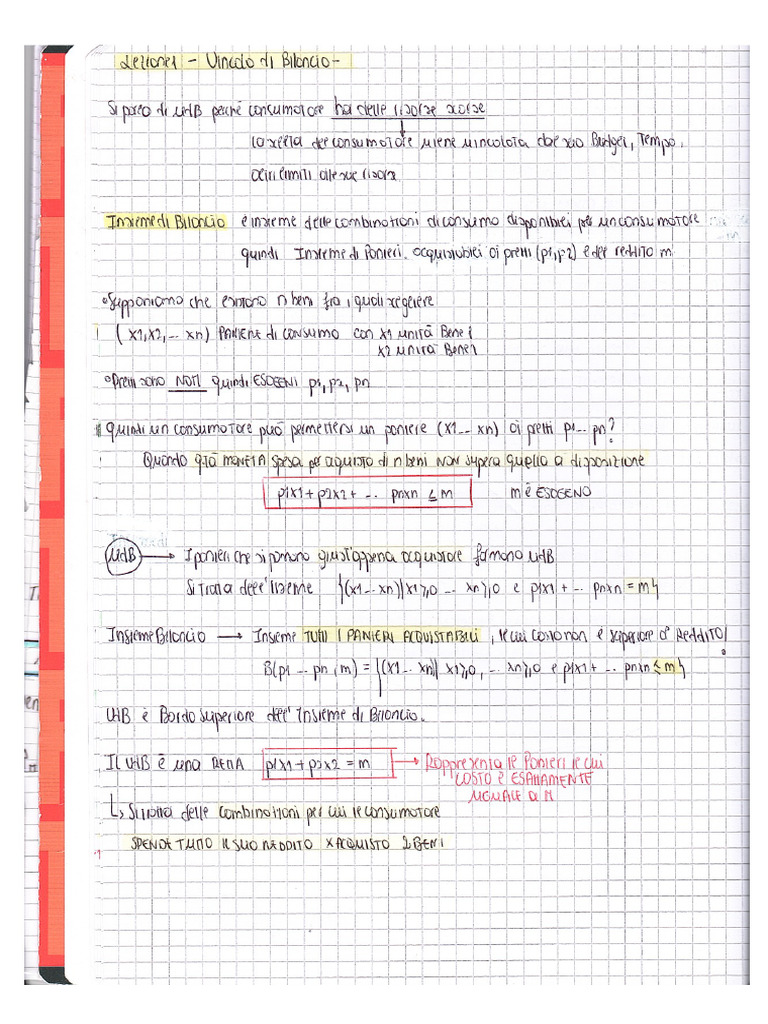 Lezione 1 - Vincolo di Bilancio -
Si parla di VdB perché consumatore ha delle risorse scarse
la scelta del consumatore viene vincolata dal suo Budget, Tempo,
altri limiti alle sue risorse
Insieme di Bilancio è insieme delle combinazioni di consumo disponibili per un consumatore
quindi Insieme di Panieri acquistabili ai prezzi (p1,p2) e del reddito m
• Supponiamo che esistano n beni fra i quali scegliere
(x1,x2,... xn) PANIERE di consumo con x1 unità Bene 1
x2 unità Bene 1
• Prezzi sono NOTI quindi ESOGENI p1, p2, pn
Quindi un consumatore può permettersi un paniere (x1... xn) ai prezzi p1... pn?
Quando qtà MONETA spesa per acquisto di n beni NON supera quella a disposizione
p1x1 + p2x2 + ... pnxn ≤ m m è ESOGENO
VdB → I panieri che si possono giust'appena acquistare formano VdB
Si tratta dell'Insieme {(x1... xn) | x1≥0 ... xn≥0 e p1x1 + ... pnxn = m}
Insieme Bilancio → Insieme TUTTI I PANIERI ACQUISTABILI, le cui costo non è superiore a REDDITO
B(p1 ... pn, m) = {(x1... xn) | x1≥0, ... xn≥0 e p1x1 + ... pnxn ≤ m}
VdB è Bordo superiore dell'Insieme di Bilancio.
Il VdB è una RETTA p1x1 + p2x2 = m → Rappresenta le Panieri le cui
COSTO È ESATTAMENTE
UGUALE a M
↳ Si tratta delle combinazioni per cui il consumatore
SPENDE TUTTO IL SUO REDDITO X ACQUISTO 2 BENI